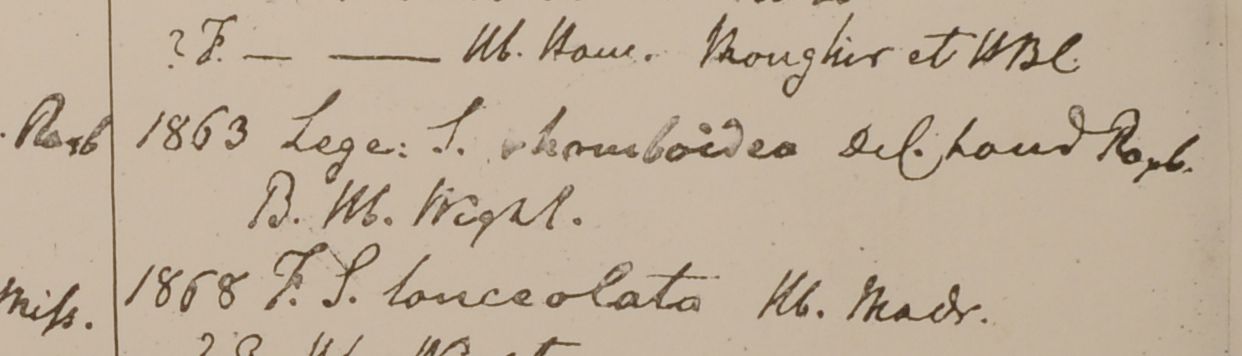 ? F. — — Hb. Ham. Monghir et HBC.
. Roxb 1863 Lege: S. rhomboidea Del. haud Roxb.
B. Hb. Wight.
Miss. 1868 F. S. lanceolata Hb. Madr.